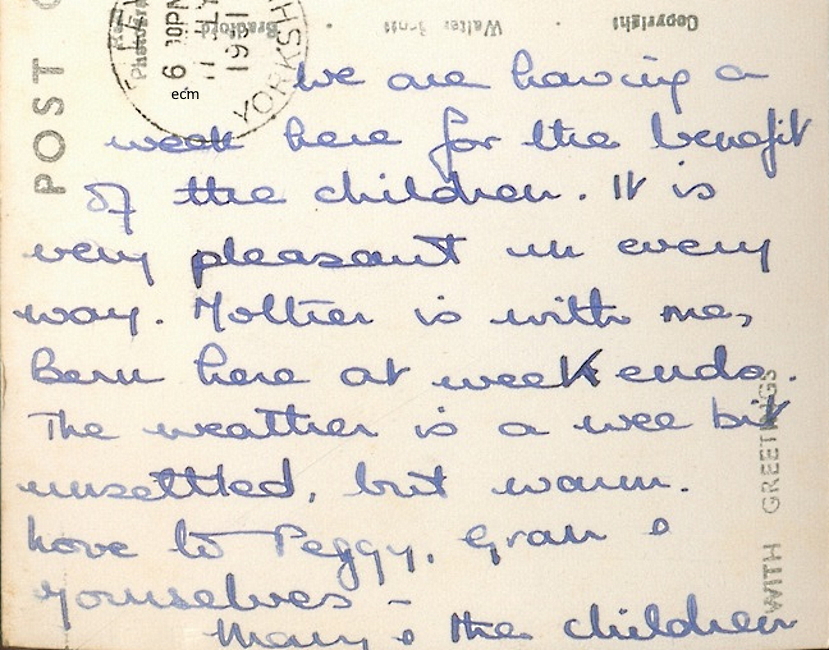 We are having a
week here for the benefit
of the children. It is
very pleasant in every
way. Mother is with me,
Bern here at week ends.
The weather is a wee bit
unsettled, but warm.
Love to Peggy, Gran &
yourselves –
Mary & the children
POST C
6 30PM
JLY
1951
YORKSH
ecm
Copyright
Walter Scott
Bradford
WITH GREETINGS